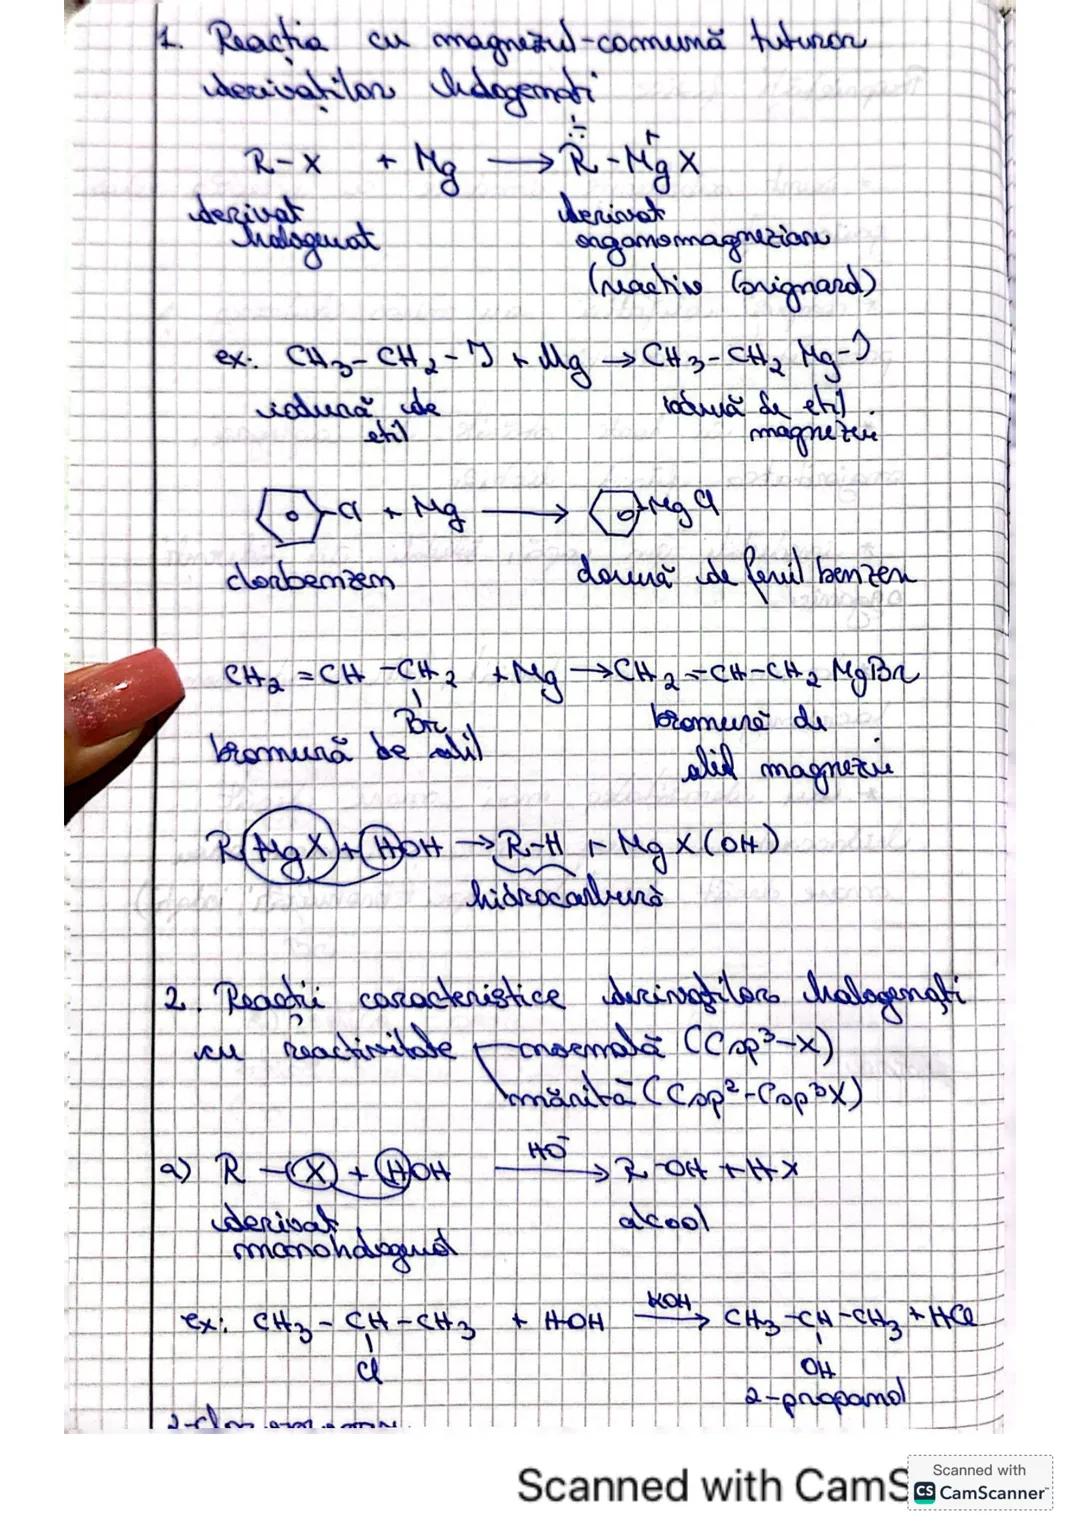 1. Reacția cu magneziul-comună tuturor
derivaților halogenați
R-X + Mg → R-MgX
derivat halogenat derivat organomagnezian
(reactiv Grignard)
ex: CH3-CH2-I + Mg → CH3-CH2 Mg-I
iodură de etil iodură de etil magneziu
-Cl + Mg → MgCl
clorbenzen clorură de fenil benzen
CH2=CH-CH2 + Mg → CH2=CH-CH2 MgBr
Br
bromură de alil bromură de alil magneziu
R MgX + HOH → R-H + MgX(OH)
hidrocarbură
2. Reacții caracteristice derivaților halogenați
cu reactivitate normală (Csp³-X)
mărită (Csp²-Csp³X)
a) R-X + HOH HO⁻ → R-OH + HX
derivat monohalogenat alcool
ex: CH3-CH-CH3 + HOH KOH → CH3-CH-CH3 + HCl
Cl OH
2-propanol
Scanned with CamS
Scanned with
CS CamScanner